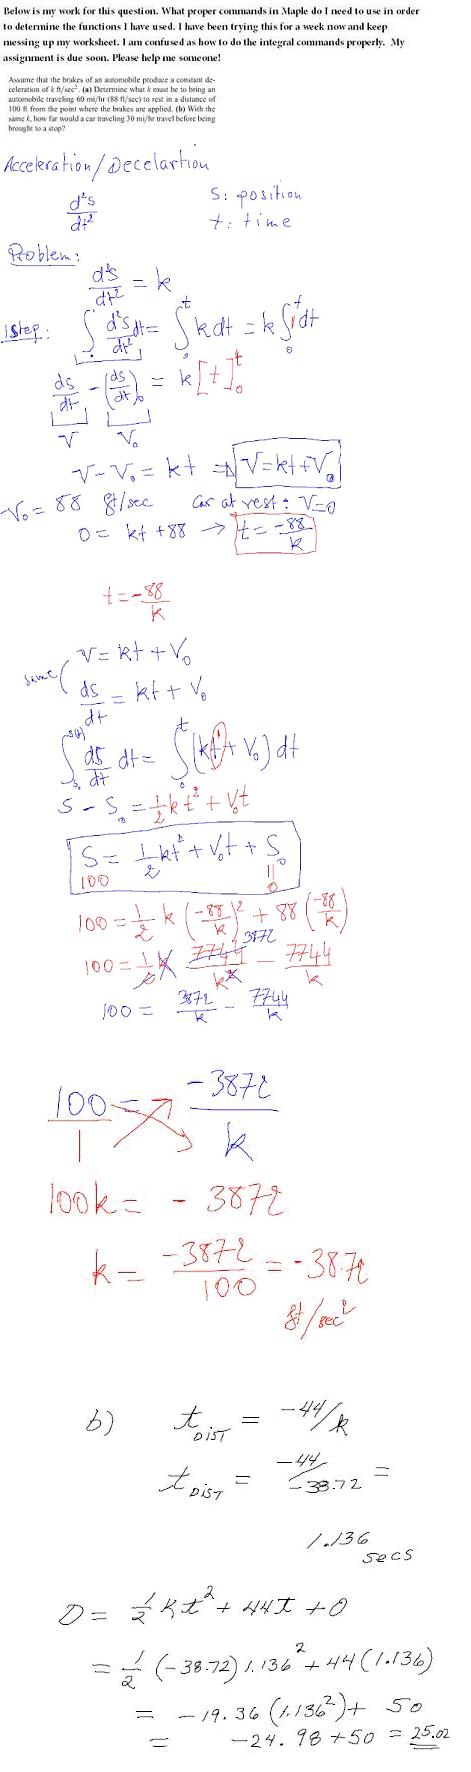 Below is my work for this question. What proper commands in Maple do I need to use in order
to determine the functions I have used. I have been trying this for a week now and keep
messing up my worksheet. I am confused as how to do the integral commands properly. My
assignment is due soon. Please help me someone!
Assume that the brakes of an automobile produce a constant de-
celeration of k ft/sec². (a) Determine what k must be to bring an
automobile traveling 60 mi/hr (88 ft/sec) to rest in a distance of
100 ft from the point where the brakes are applied. (b) With the
same k, how far would a car traveling 30 mi/hr travel before being
brought to a stop?
Acceleration/Decelartion
d²s/dt² S: position
t: time
Problem:
d²s/dt² = k
1step: ∫ d²s/dt² dt = ∫₀ᵗ k dt = k ∫₀ᵗ 1 dt
ds/dt - (ds/dt)₀ = k [t]₀ᵗ
V V₀
V - V₀ = kt ⇒ V = kt + V₀
V₀ = 88 ft/sec Car at rest: V=0
0 = kt + 88 → t = -88/k
t = -88/k
same V = kt + V₀
ds/dt = kt + V₀
∫ₛ₀ˢ⁽ᵗ⁾ ds/dt dt = ∫₀ᵗ (kt + V₀) dt
S - S₀ = 1/2 kt² + V₀t
S = 1/2 kt² + V₀t + S₀
100 || 0
100 = 1/2 k (-88/k)² + 88 (-88/k)
100 = 1/2 k 7744/k² - 7744/k
3872
100 = 3872/k - 7744/k
100/1 = -3872/k
100k = - 3872
k = -3872/100 = -38.72
ft/sec²
b) t DIST = -44/k
t DIST = -44/-38.72 =
1.136
secs
D = 1/2 kt² + 44t + 0
= 1/2 (-38.72) 1.136² + 44 (1.136)
= -19.36 (1.136²) + 50
= -24.98 + 50 = 25.02